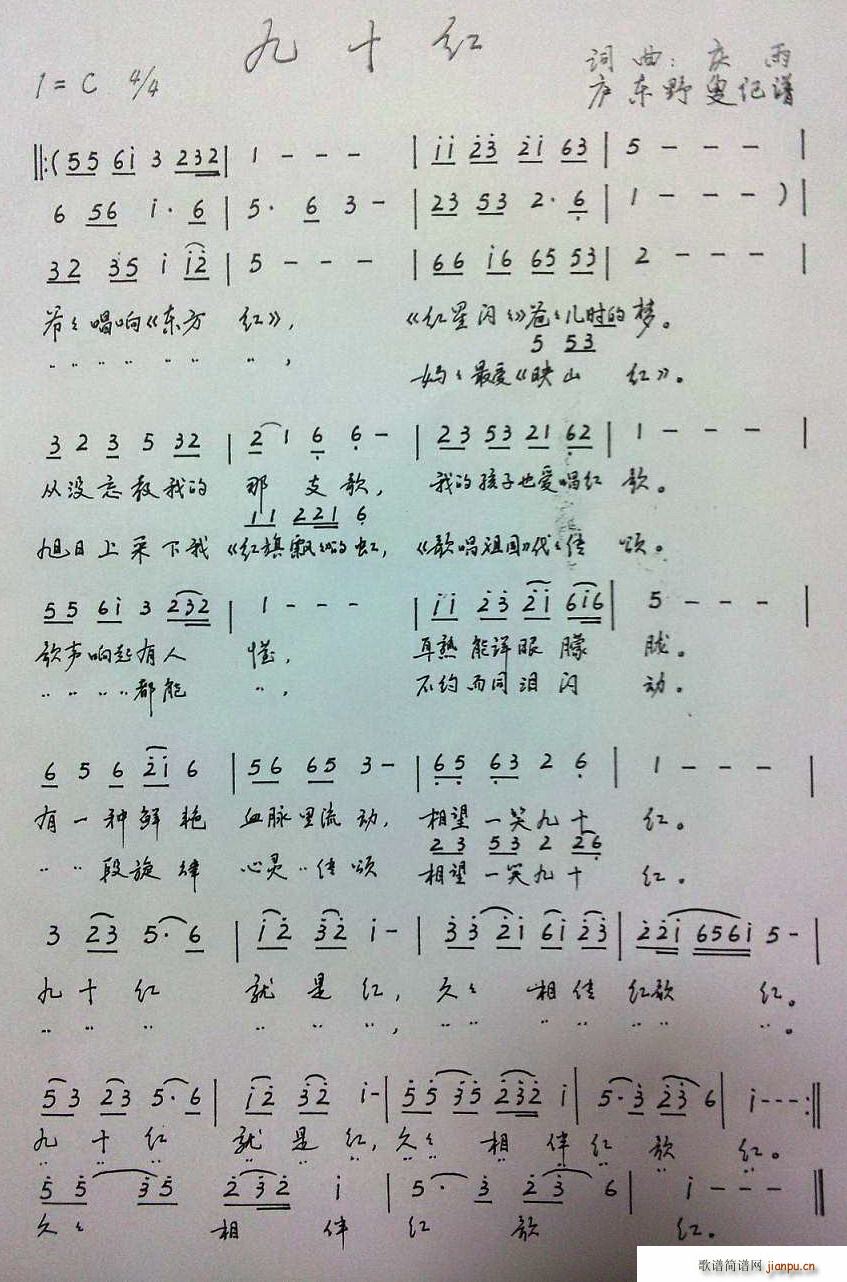 九十红
1=C 4/4
词曲：庆雨
庐东野叟记谱
‖:(55 6i 3 232 | 1 - - - | ii 23 2i 63 | 5 - - - |
6 56 i· 6 | 5· 6 3 - | 23 53 2· 6 | 1 - - - )|
32 35 i i2 | 5 - - - | 66 i6 65 53 | 2 - - - |
爷々唱响《东方红》， 《红星闪々》爸々儿时的梦。
〃 〃 〃 〃 〃 〃 〃， 5 53
妈々最爱《映山红》。
3 2 3 5 32 | 2 1 6 6 - | 23 53 21 62 | 1 - - - |
从没忘教我的那支歌， 我的孩子也爱唱红歌。
11 2221 6
旭日上采下我《红旗飘々》的虹， 《歌唱祖国》代々传颂。
55 6i 3 232 | 1 - - - | ii 23 2i 6i6 | 5 - - - |
歌声响起有人懂， 耳熟能详眼朦胧。
〃 〃 〃 〃 都能 〃， 不约而同泪闪动。
6 5 6 2i 6 | 56 65 3 - | 65 63 2 6 | 1 - - - |
有一种鲜艳 血脉里流动， 相望一笑九十红。
23 53 2 26
〃 〃 段旋律 心灵〃传颂 相望一笑九十红。
3 23 5· 6 | i2 32 i - | 33 2i 6i 23 | 22i 656i 5 - |
九十红 就是红， 久々相传红歌红。
〃 〃 〃 〃 〃 〃， 〃 〃 〃 〃 〃 〃 〃。
53 23 5· 6 | i2 32 i - | 55 35 232 i | 5· 3 23 6 | i - - - :‖
九十红 就是红， 久々相伴红歌红。
55 35 232 i | 5· 3 23 6 | i - - - ‖
久々相伴红歌红。
歌谱简谱网
jianpu.cn